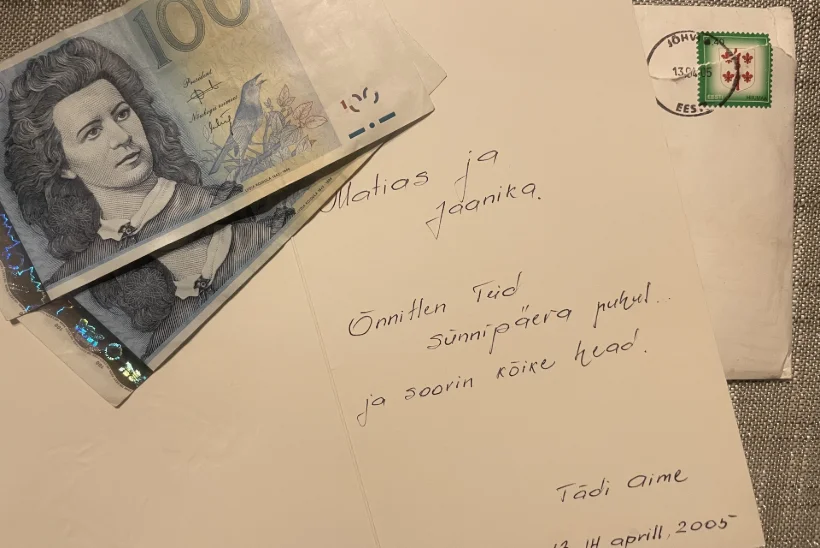 100
President
Nõukogu esimees
JÕHVI
13.04.05
EESTI
EESTI
Matias ja
Jaanika.
Õnnitlen Teid
sünnipäeva puhul...
ja soovin kõike head.
Tädi Aime
13, 14 aprill, 2005